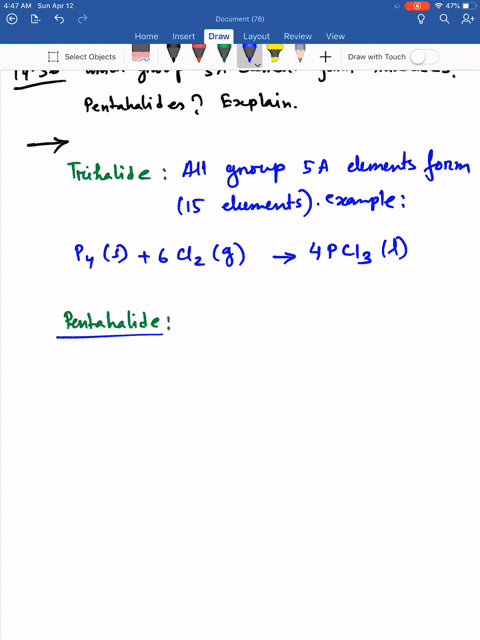 4:47 AM Sun Apr 12
47%
Document (78)
Home Insert Draw Layout Review View
Select Objects
Draw with Touch
Pentahalides? Explain.
Trihalide: All group 5A elements form
(15 elements). example:
P4 (s) + 6 Cl2 (g) → 4 PCl3 (l)
Pentahalide: